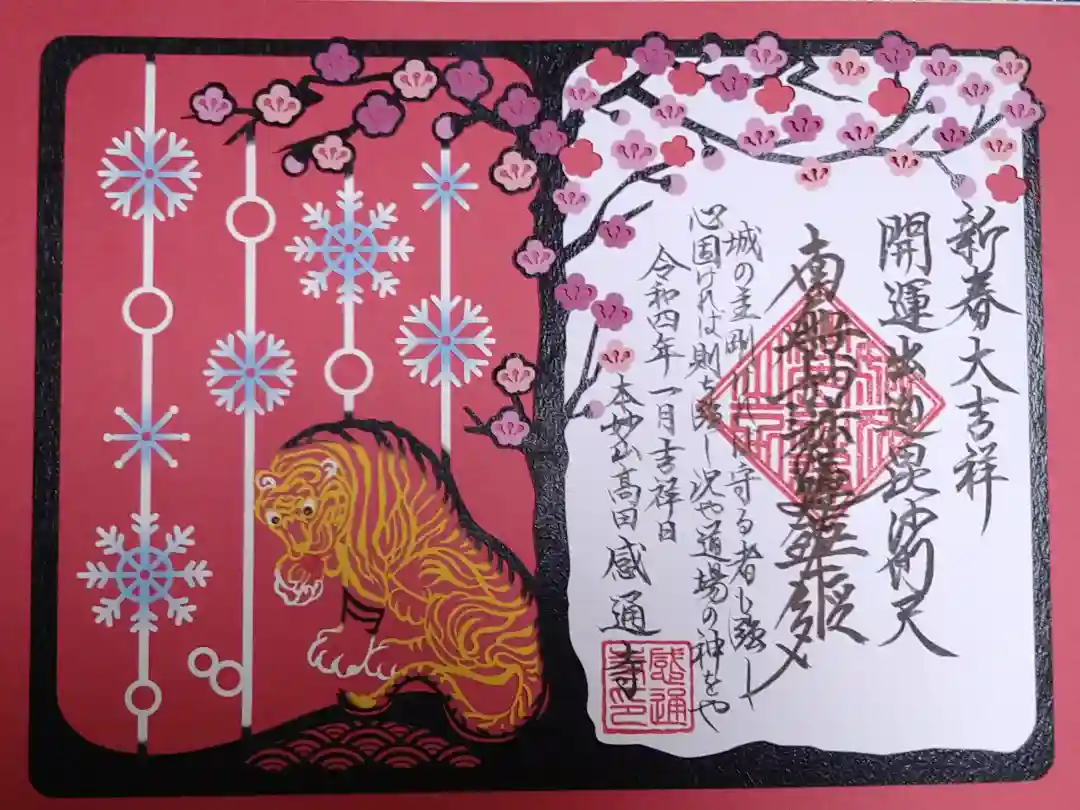 新春大吉祥
開運出迎毘沙門天
城の主剛ければ守る者も強し
心固ければ則ち強し況や道場の神をや
令和四年一月吉祥日
本妙山高田感通寺
感通
寺印